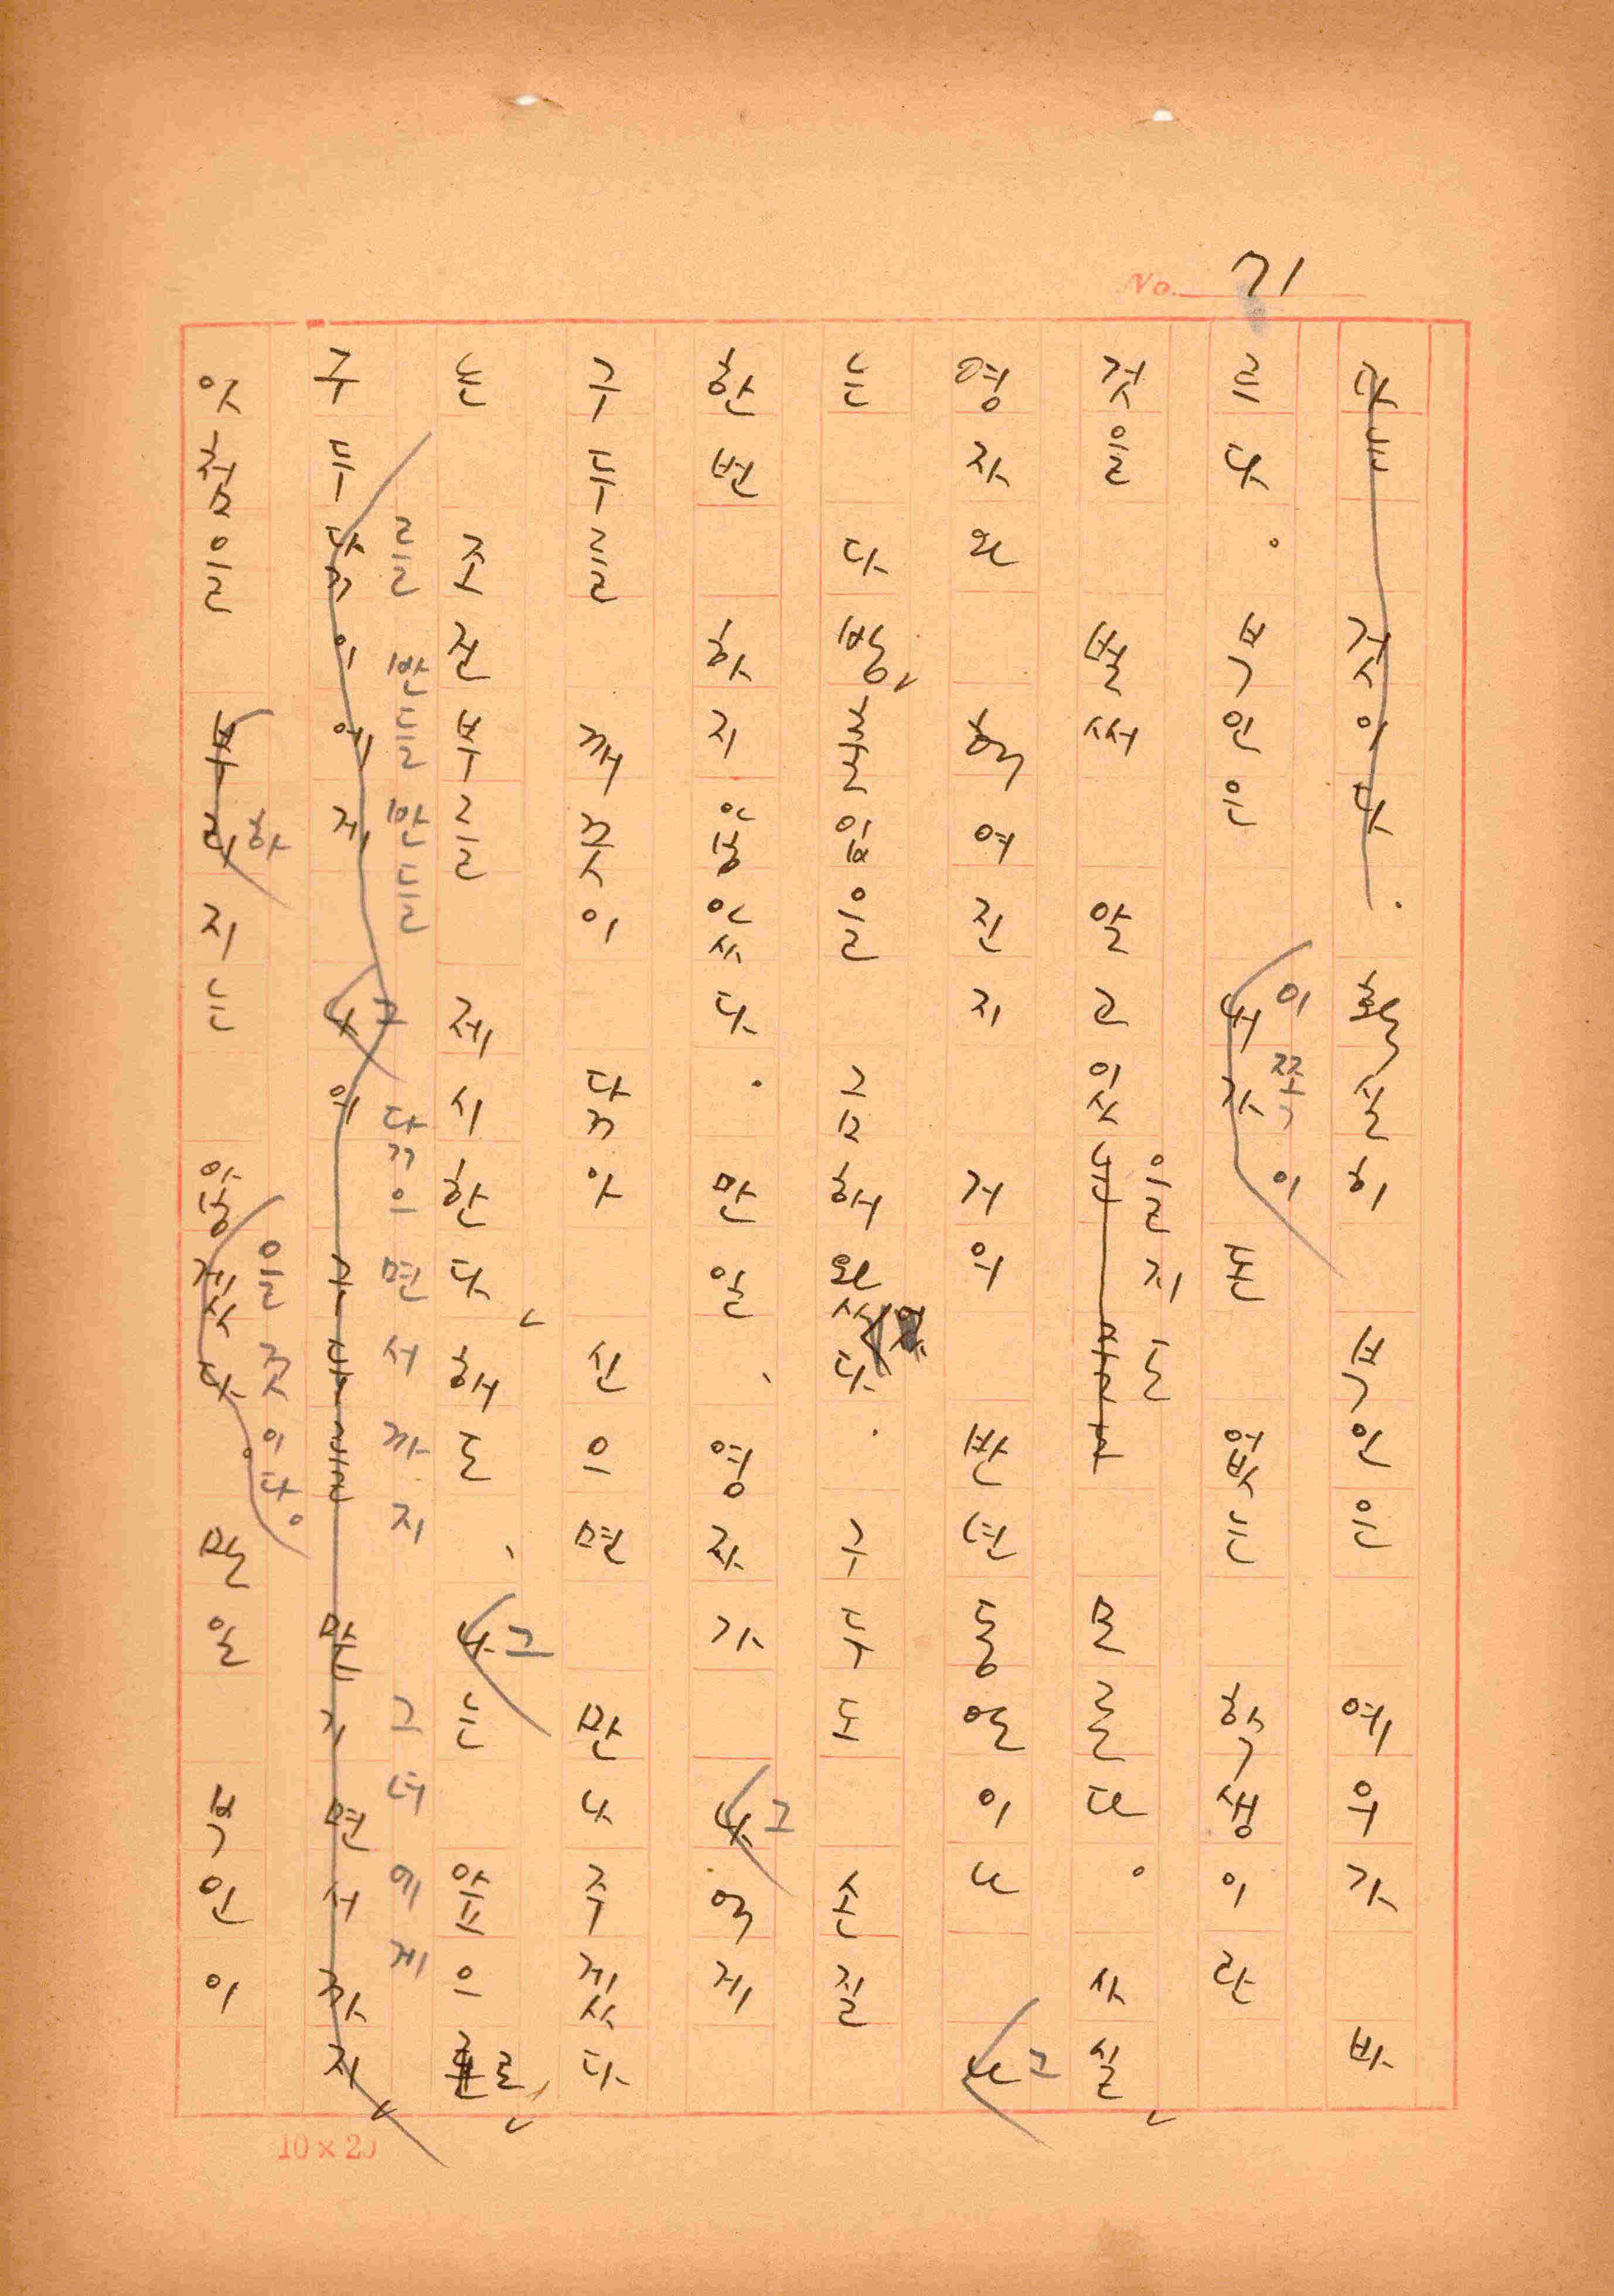 No. 71
라는 것이다. 확실히 복인은 예우가 바
르다. 복인은 내가 돈 없는 학생이란
이쪽이
것을 벌써 알고 있는 모른다. 사실,
을지도
영자와 헤여진지 거의 반년동안이나 나
그
는 다방, 출입을 금해왔다. 구두도 손질
한번 하지 않았다. 만일, 영자가 나에게
그
구두를 깨끗이 닦아 신으면 만나주겠다
는 조건부를 제시한다, 해도, 나는 앞으로,
그
를 반들반들 닦으면서까지 그녀에게
구두닦이에게 나의 면서까지,
그
앗첨을 부리지는 않겠다. 만일 복인이
하 을 것이다.
10×20